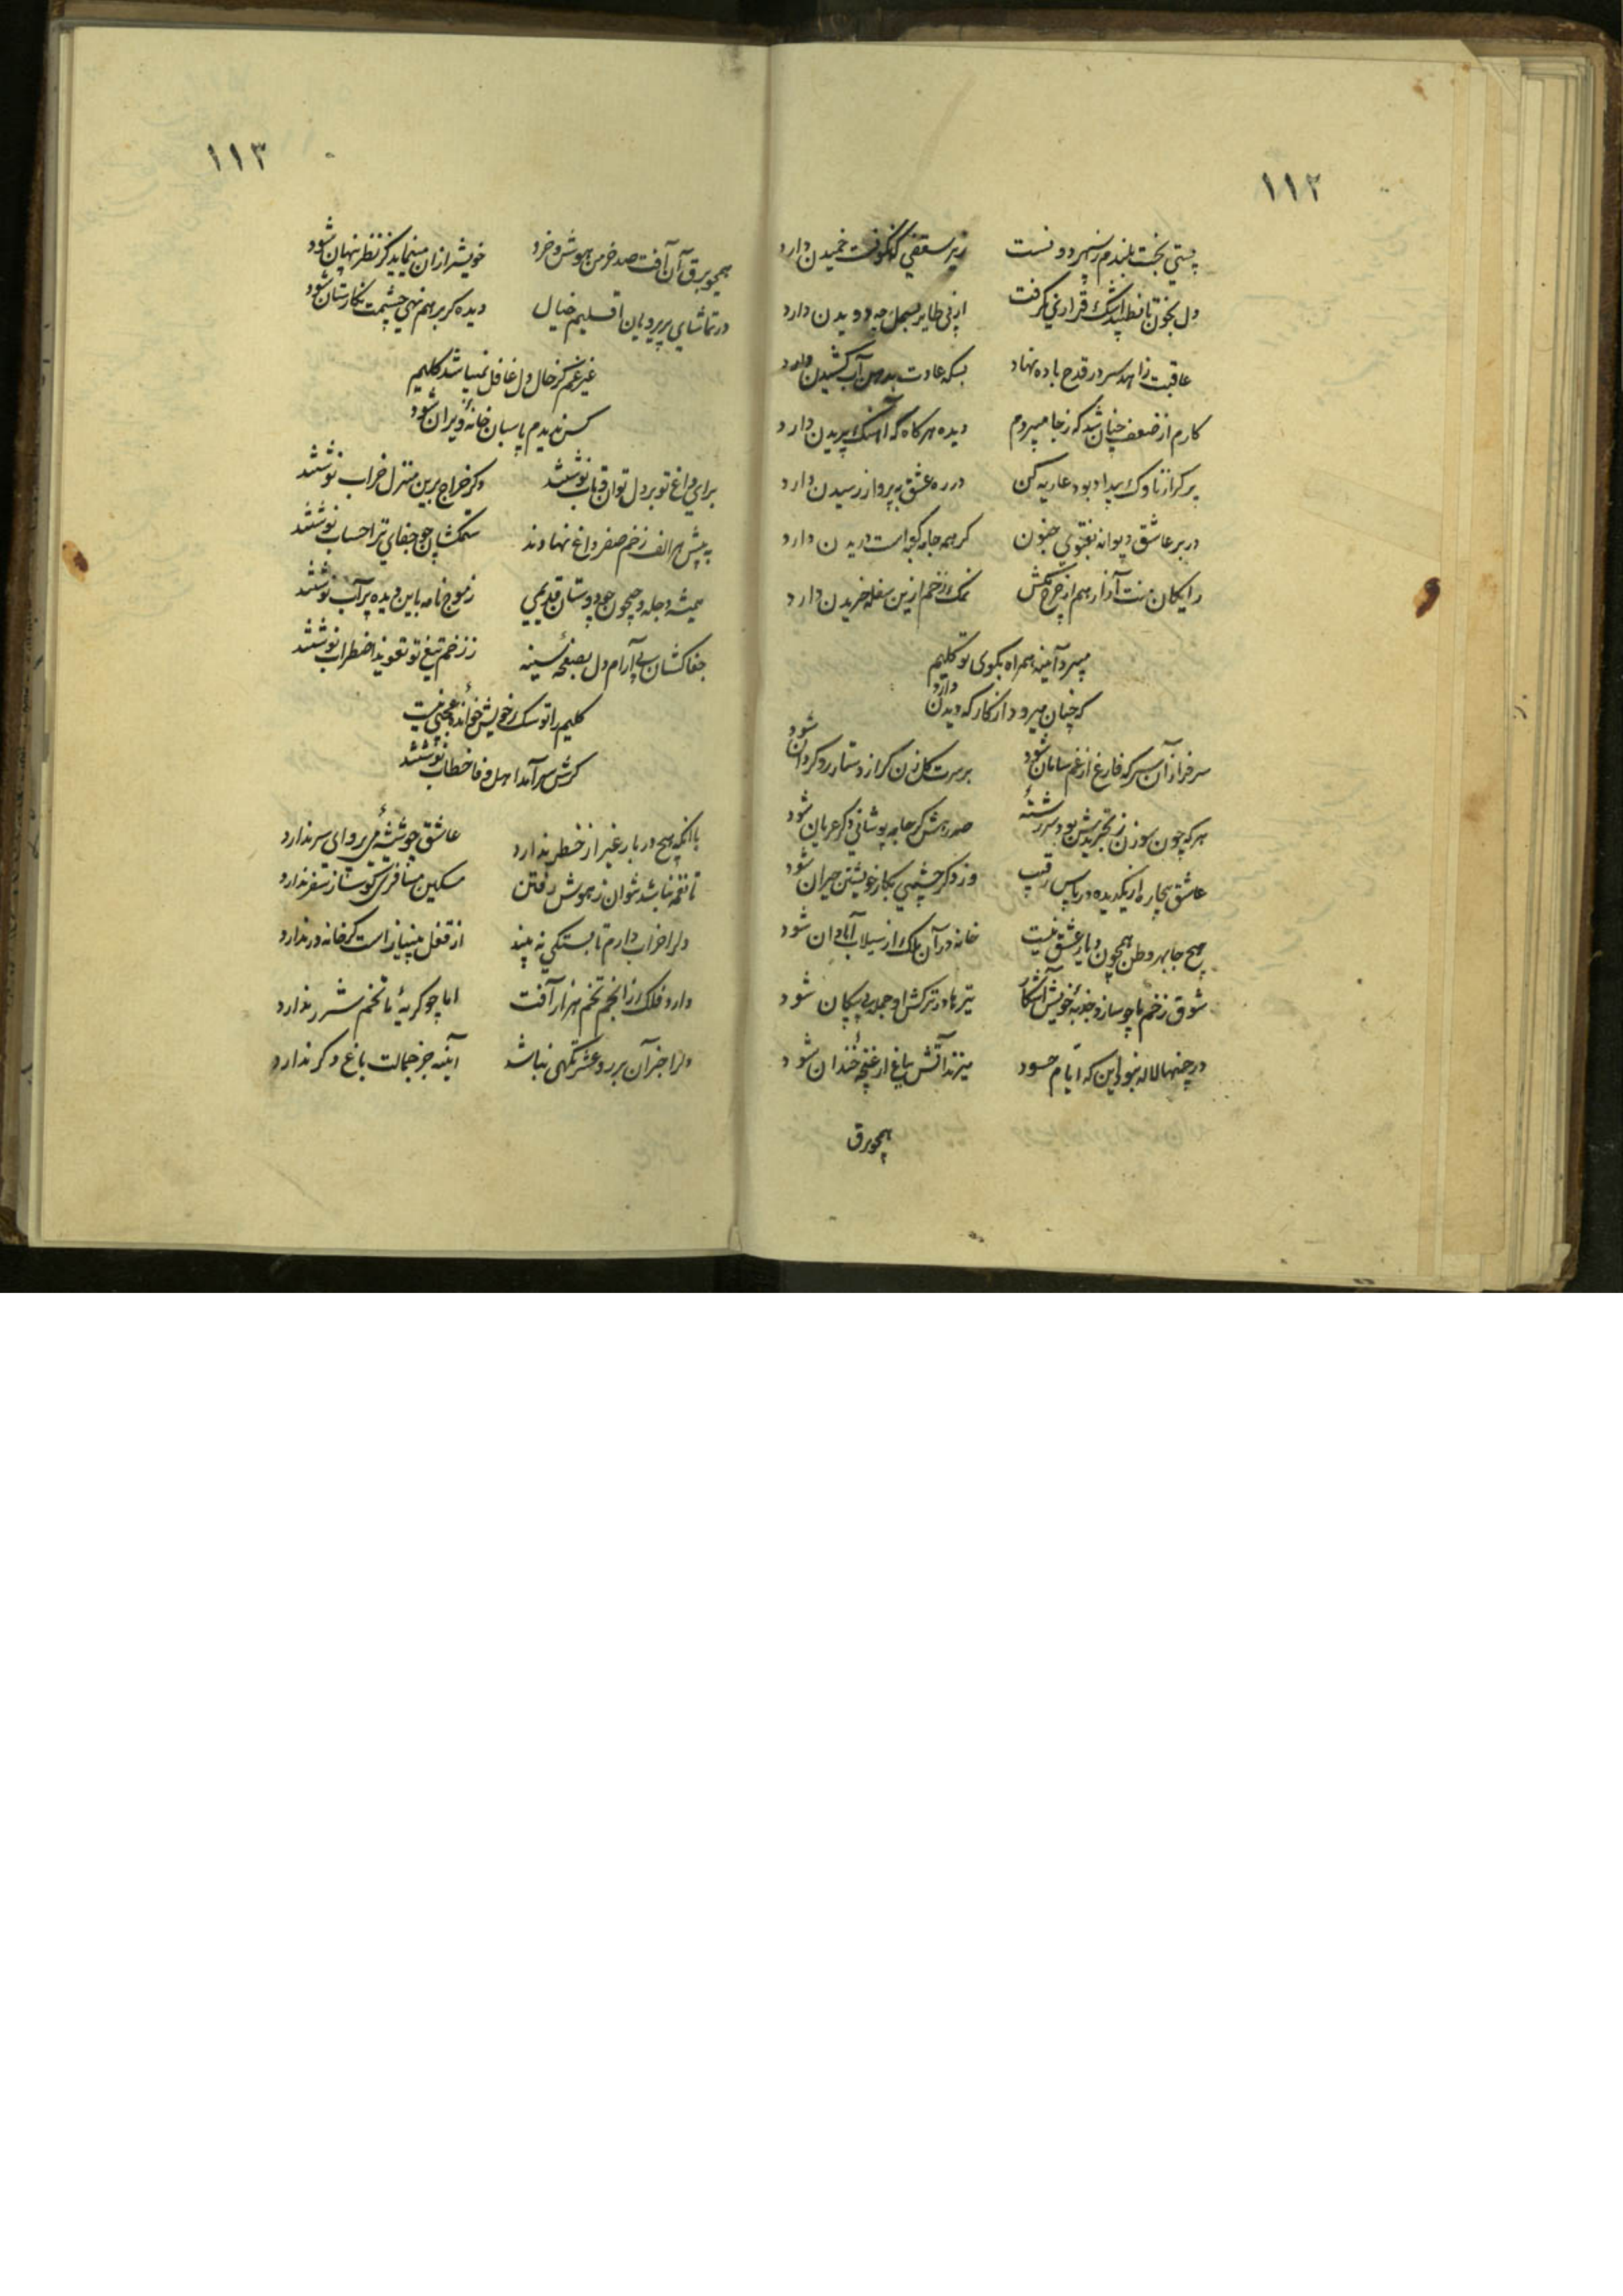 ١١٢
پستی بخت بلندم ز سپهر دونست زیر سقفی که نکونست خمیدن دارد
دل بخون تا نطپید اشک قراری نکرفت از پی طایر بسمل چه دویدن دارد
عاقبت زاهد سر در قدح باده نهاد بسکه عادت بدهن آب کشیدن دارد
کارم از ضعف چنان شد که ز جا میپردم دیده هر کاه که آهنک پریدن دارد
پر کر از ناوک بیداد بود عاریه کن در ره عشق به پرواز رسیدن دارد
در بر عاشق دیوانه بفتوی جنون کر همه جامه کعبه است دریدن دارد
رایکان منت آزار هم از چرخ مکش نمک زخم ازین سفله خریدن دارد
میبرد آینه همراه بکوی تو کلیم
که چنان میرود از کار که دیدن دارد
سرفراز آن سر که فارغ از غم سامان شود بر سرت کل زن کر از دستار روکردان شود
هر که چون سوزن ز تجریدش بود سررشتهٔ صد رهش کر جامه پوشانی دکر عریان شود
عاشق بیچاره از یکدیده در پاس رقیب وز دکر چشمی بکار خویشتن حیران شود
هیچ جا بهر وطن همچون دیار عشق نیست خانه در آن ملک از سیلاب آبادان شود
شوق زخم ما چو سازد جذبهٔ خویش آشکار تیرها در ترکش او جمله بی پیکان شود
در چمنها لاله نبود این که ایام حسود میزند آتش بباغ ار غنچهٔ خندان شود
همچو برق
١١٣
همچو برق آن آفت صد خرمن هوش و خرد خویش را زان مینماید کز نظر پنهان شود
در تماشای پریرویان اقلیم خیال دیده کر بر هم نهی چشمت نکارستان شود
غیر غم کز حال دل غافل نمیباشد کلیم
کس ندیدم پاسبان خانهٔ ویران شود
برای داغ تو بر دل توان و تاب نوشتند دکر خراج برین منزل خراب نوشتند
به پیش هر الف زخم صفر داغ نهادند ستمکشان چو جفای ترا حساب نوشتند
همیشه دجله و جیحون چو دوستان قدیمی ز موج نامه باین دیده پر آب نوشتند
جفاکشان پی آرام دل بصفحهٔ سینه ز زخم تیغ تو تعویذ اضطراب نوشتند
کلیم را تو سک خویش خواندهٔ عجبی نیست
کرش سرآمد اهل وفا خطاب نوشتند
با انکه هیچ در بار غیر از خطر ندارد عاشق چو شیشهٔ می پروای سر ندارد
تا نغمه نباشد نتوان ز هوش رفتن مسکین مسافری کو ساز سفر ندارد
دل را خراب دارم تا بستکی نه بیند از قفل بینیاز است کر خانه در ندارد
دارد فلک ز انجم تخم هزار آفت اما چو کریهٔ ما تخم شرر ندارد
دل را جز آن پریرو عشرتکهی نباشد آینه جز جمالت باغ دکر ندارد